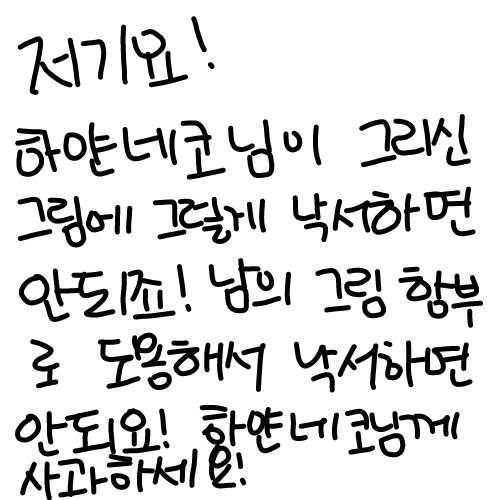 저기요!
하얀네코님이 그리신
그림에 그렇게 낙서하면
안되죠! 남의 그림 함부
로 도용해서 낙서하면
안되요! 하얀네코님께
사과하세요!